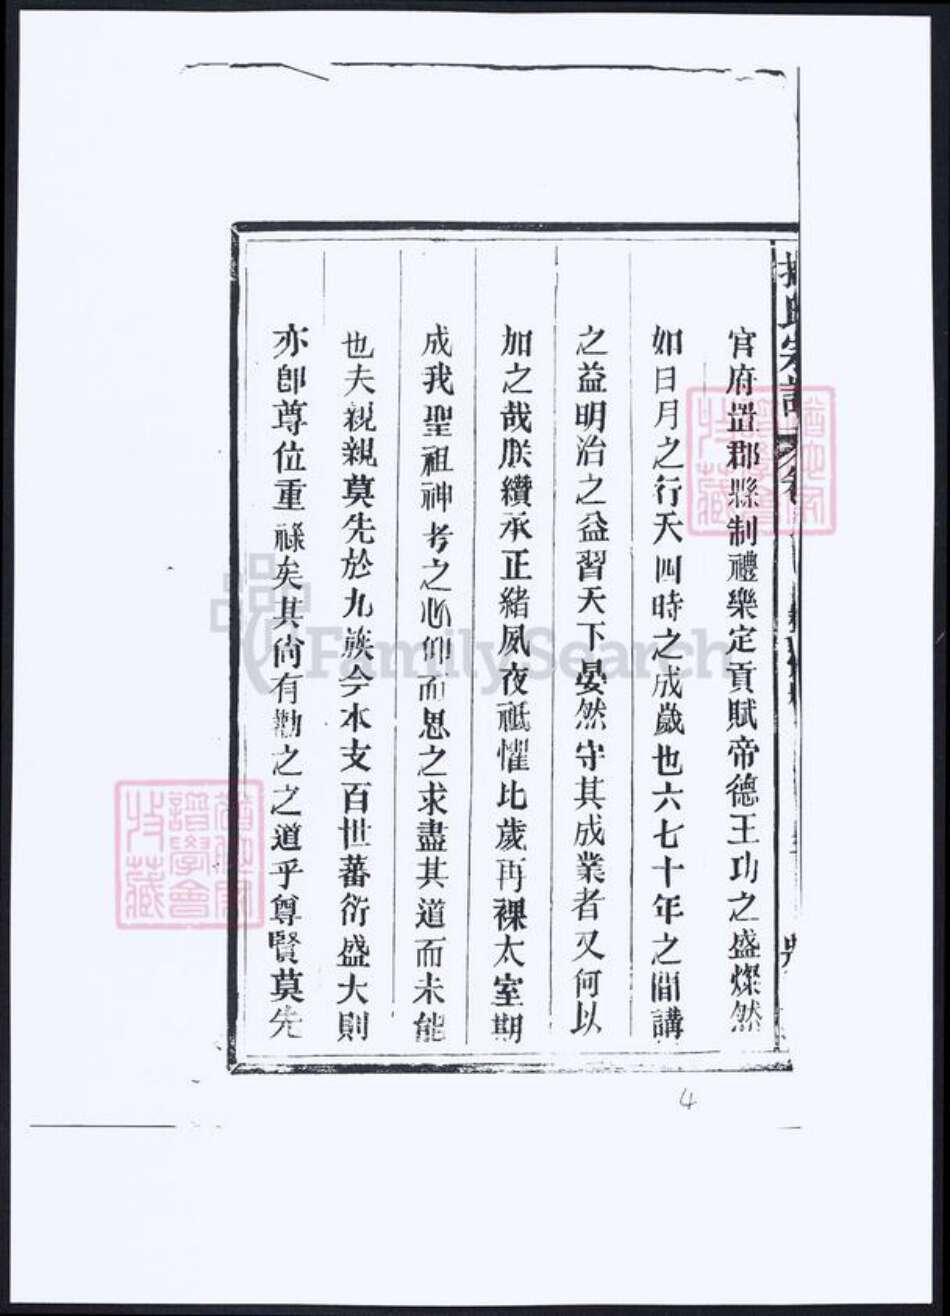 官府置郡縣制禮樂定貢賦帝德王功之盛燦然
如日月之行天四時之成歲也六七十年之間講
之益明治之益習天下晏然守其成業者又何以
加之哉朕纘承正緒夙夜祗懼比歲再祼太室期
成我聖祖神考之心仰而思之求盡其道而未能
也夫親親莫先於九族今本支百世蕃衍盛大則
亦卽尊位重祿矣其尙有勸之之道乎尊賢莫先
譜學會
收藏
譜學會
收藏
FamilySearch
4